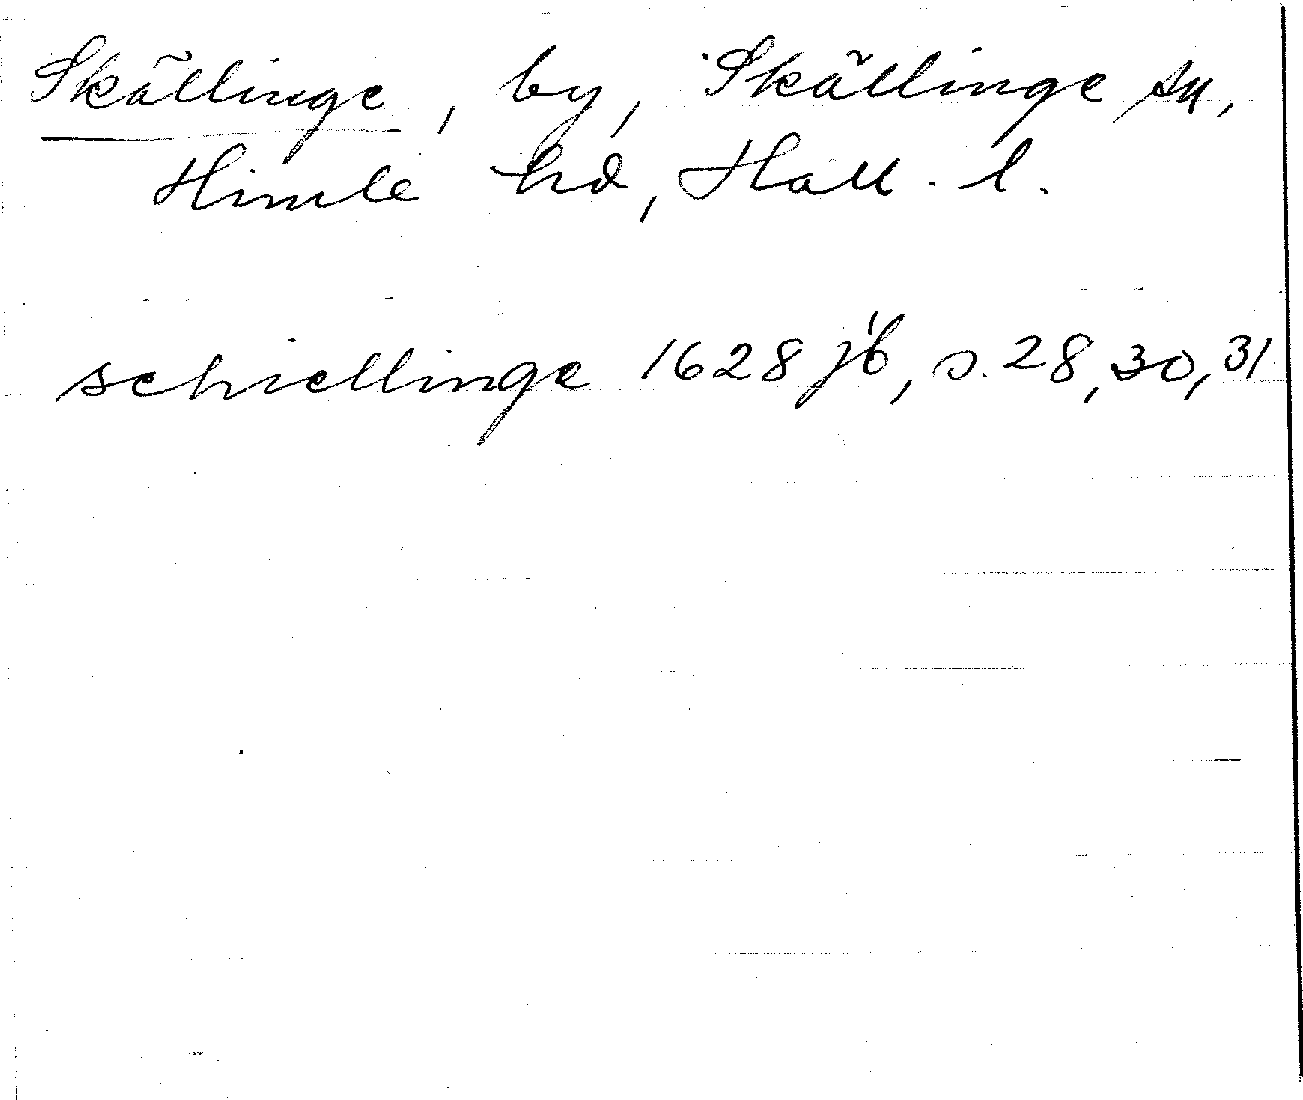 Skällinge, by, Skällinge sn,
Himle hd, Hall. l.
schiellinge 1628 jb, s. 28, 30, 31